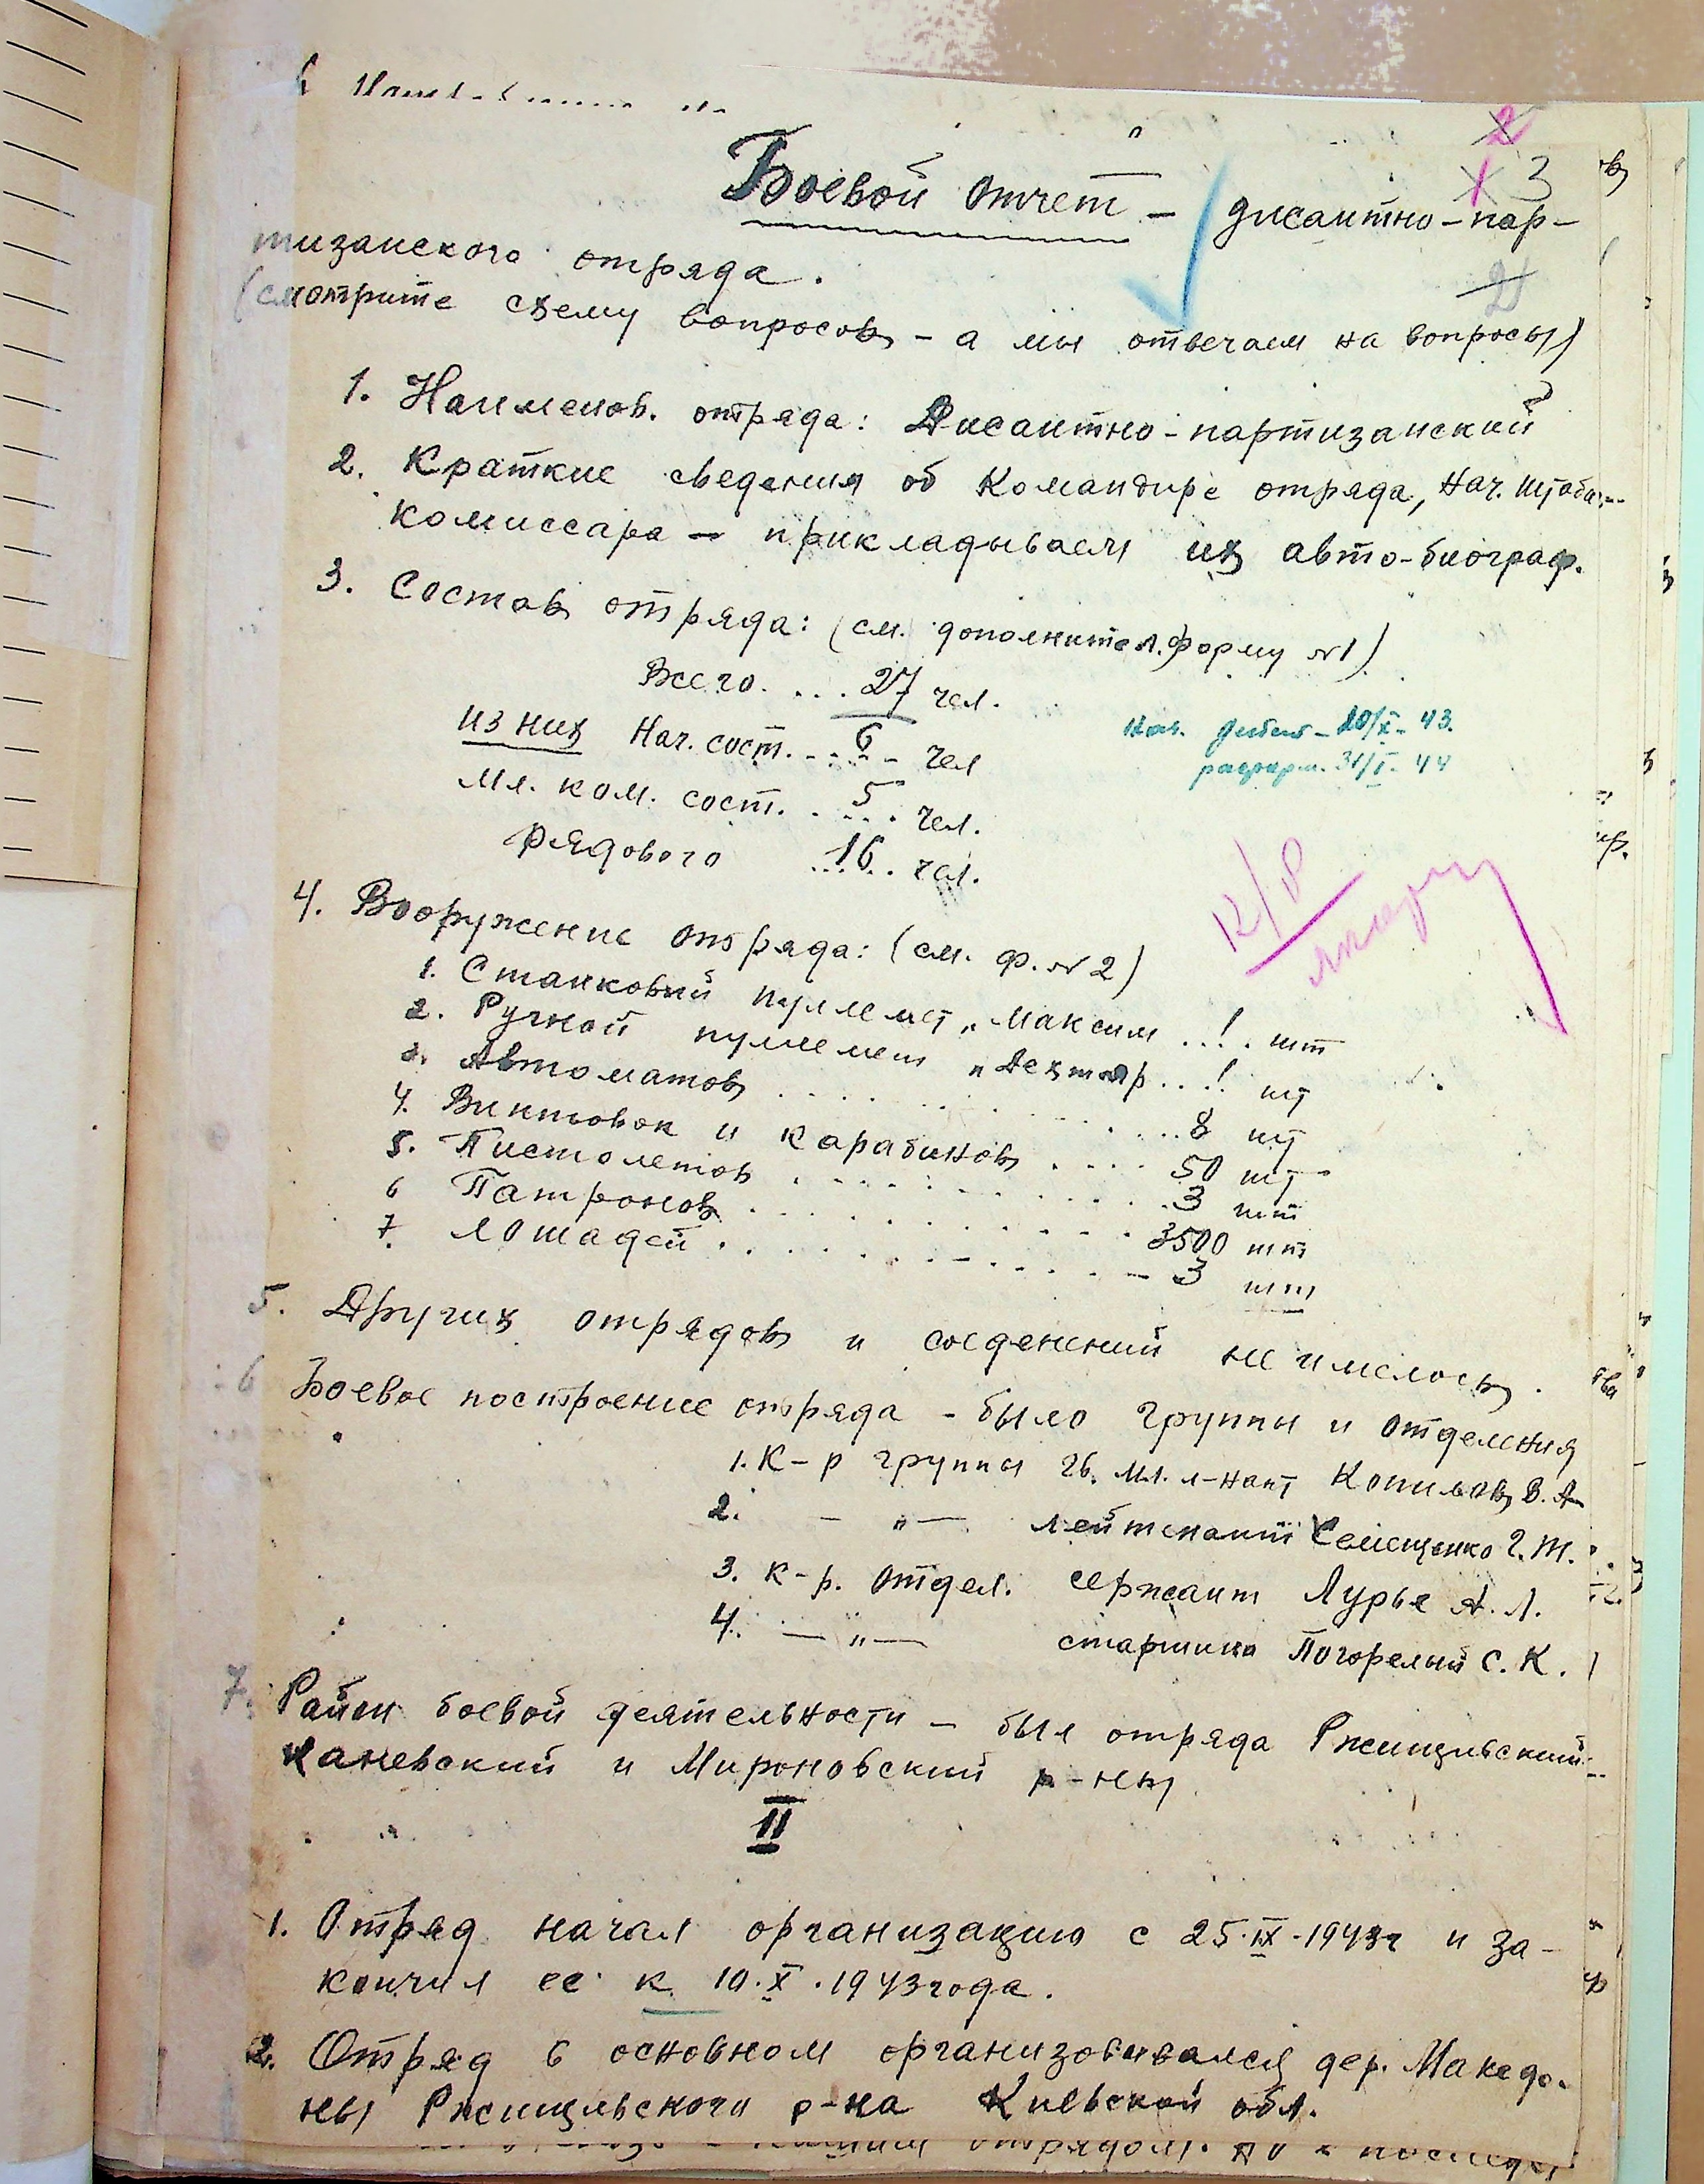 2
1 3
Боевой отчет - дисантно-пар-
тизанского отряда.
2
(смотрите схему вопросов - а мы отвечаем на вопросы)
1. Наименов. отряда: Дисантно-партизанский
2. Краткие сведения об Командире отряда, Нач. штаба
комиссара - прикладываем их авто-биограф.
3. Состав отряда: (см. дополнител. форму №1)
Всего. ... 27 чел.
из них Нач. сост. ... 6 чел
Мл. ком. сост. ... 5 чел.
рядового ... 16 чел.
Нач. 20/X- 43.
расформ. 31/I- 44
12/
4. Вооружение отряда: (см. ф. №2)
1. Станковый пулемет „Максим ... 1 шт
2. Ручной пулемет „Дехтяр ... 1 шт
3. Автоматов ... 8 шт
4. Винтовок и карабинов .... 50 шт
5. Пистолетов ... 3 шт
6 Патронов ... 3500 шт
7. Лошадей ... 3 шт
5. Других отрядов и соеденений не имелось.
6 Боевое построение отряда - было группы и отделения
1. К-р группы гв. мл. л-нант Копылов В. А
2. - „ - лейтенант Семещенко Г. Т.
3. к-р. отдел. сержант Лурье А. Л.
4. - „ - старшина Погорелый С. К.
7. Район боевой деятельности - был отряда Ржищевский
Каневский и Мироновский р-ны
II
1. Отряд начал организацию с 25.IX.1943г и за-
кончил ее к 10.X.1943 года.
2. Отряд в основном организовывался дер. Македо-
ны Ржищевского р-на Киевской обл.
отрядом. но